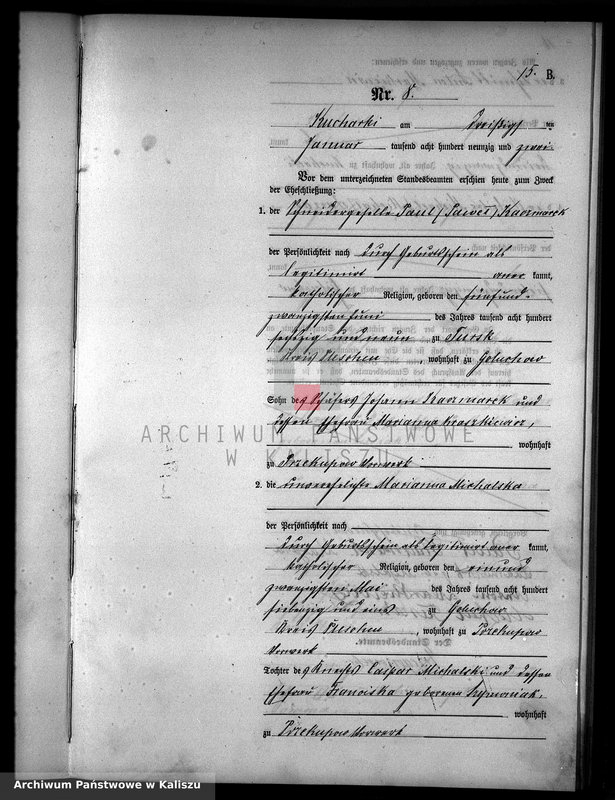 15. B.
Nr. 8.
Kucharki am dreißigsten
Januar tausend acht hundert neunzig und zwei
Vor dem unterzeichneten Standesbeamten erschien heute zum Zweck
der Eheschließung:
1. der Schneidergeselle Paul (Pawel) Kaczmarek
der Persönlichkeit nach durch Geburtsschein als
legitimirt aner kannt,
katholischer Religion, geboren den fünfund-
zwanzigsten Juni des Jahres tausend acht hundert
sechzig und neun zu Tursk
Kreis Pleschen, wohnhaft zu Goluchow
Sohn des Schäfers Johann Kaczmarek und
dessen Ehefrau Marianna
wohnhaft
zu Przekupow Vorwerk
2. die unverehelichte Marianna Michalska
der Persönlichkeit nach
durch Geburtsschein als legitimirt aner kannt,
katholischer Religion, geboren den einund
zwanzigsten Mai des Jahres tausend acht hundert
siebenzig und eins zu Goluchow
Kreis Pleschen, wohnhaft zu Przekupow
Vorwerk
Tochter des Knechts Caspar Michalski und dessen
Ehefrau Franciska geborenen Szymoniak,
wohnhaft
zu Przekupow Vorwerk
ARCHIWUM PAŃSTWOWE
W KALISZU
Archiwum Państwowe w Kaliszu